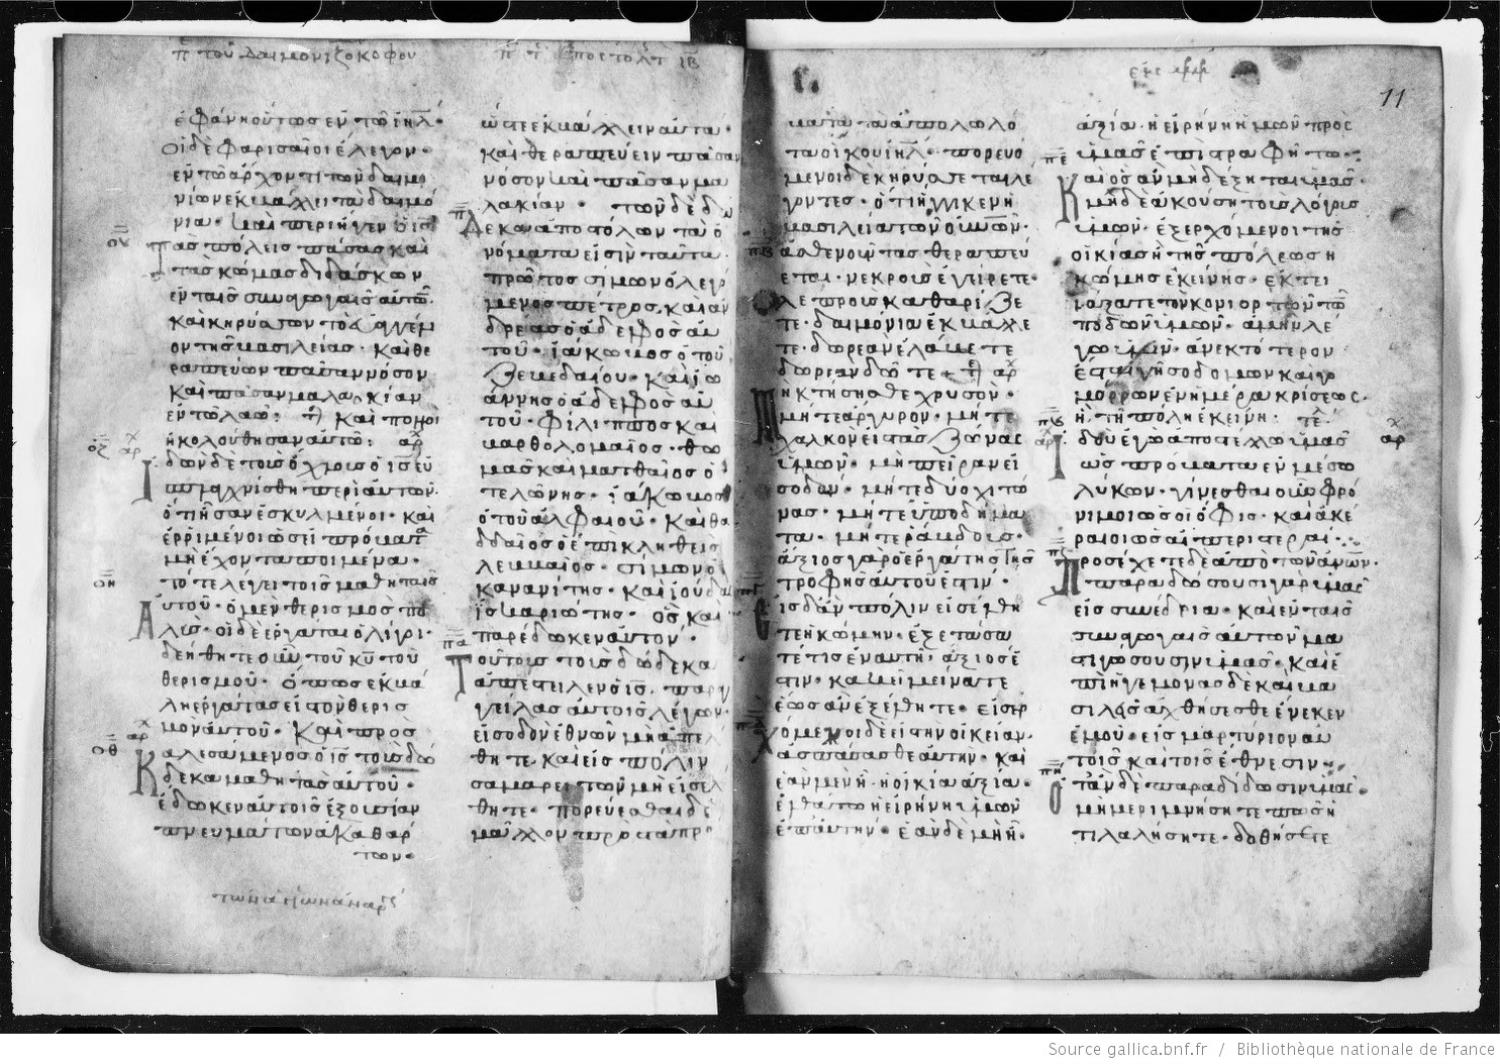 π τοῦ δαιμονιζο κωφου
ἐφάνη οὕτως ἐν τῶ ιηλ·
Οἱ δὲ φαρισαῖοι ἔλεγον·
ἐν τῶ ἄρχοντι τῶν δαιμο
νίων ἐκβάλλει τὰ δαιμό
νια· καὶ περιῆγεν ὁ ις
τὰς πόλεις πάσας καὶ
τὰς κώμας διδάσκων
ἐν ταῖς συναγωγαῖς αὐτῶ·
καὶ κηρύσσων τὸ εὐαγγέλι
ον τῆς βασιλείας· καὶ θε
ραπεύων πᾶσαν νόσον
καὶ πᾶσαν μαλακίαν
ἐν τῶ λαῶ· καὶ πολλοὶ
ἠκολούθησαν αὐτῶ: αρ
Ἰδὼν δὲ τοὺς ὄχλους ὁ ις εὐ
σπλαγχνίσθη περὶ αὐτῶν·
ὅτι ἦσαν ἐσκυλμένοι· καὶ
ἐρριμένοι ὡσεὶ πρόβατα
μὴ ἔχοντα ποιμένα·
τότε λέγει τοῖς μαθηταῖς
Αὐτοῦ· ὁ μὲν θερισμὸς πο
λύς· οἱ δὲ ἐργάται ὀλίγοι·
δεήθητε οὖν τοῦ κυ τοῦ
θερισμοῦ· ὅπως ἐκβά
λη ἐργάτας εἰς τὸν θερισ
μὸν αὐτοῦ· Καὶ προσ
Καλεσάμενος ὁ ις τοὺς δώ
δεκα μαθητὰς αὐτοῦ·
ἔδωκεν αὐτοῖς ἐξουσίαν
πνευμάτων ἀκαθάρ
των·
ὥστε ἐκβάλλειν αὐτά·
καὶ θεραπεύειν πᾶσαν
νόσον καὶ πᾶσαν μα
λακίαν· τῶν δὲ δώ
Δεκα ἀποστόλων τὰ ὀ
νόματα εἰσὶν ταῦτα·
πρῶτος σίμων ὁ λεγό
μενος πέτρος, καὶ ἀν
δρέας ὁ ἀδελφὸς αὐ
τοῦ· ἰάκωβος ὁ τοῦ
Ζεβεδαίου· καὶ ἰω
άννης ὁ ἀδελφὸς αὐ
τοῦ· φίλιππος καὶ
βαρθολομαῖος· θω
μᾶς καὶ ματθαῖος ὁ
τελώνης· ἰάκωβος
ὁ τοῦ ἀλφαίου· καὶ θα
δδαῖος ὁ ἐπικληθεὶς
λεββαῖος· σίμων ὁ
κανανίτης· καὶ ἰούδας
ἰσκαριώτης· ὃς καὶ
παρέδωκεν αὐτόν·
Τούτους τοὺς δώδεκα
ἀπέστειλεν ὁ ις· παραγ
γείλας αὐτοῖς λέγων·
εἰς ὁδὸν ἐθνῶν μὴ ἀπελ
θητε· καὶ εἰς πόλιν
σαμαρειτῶν μὴ εἰσελ
θητε· πορεύεσθαι δὲ
μᾶλλον πρὸς τὰ πρό
11
βατα τὰ ἀπολωλό
τα οἴκου ιηλ· πορευό
μενοι δὲ κηρύσσετε λέ
γοντες· ὅτι ἤγγικεν ἡ
βασιλεία τῶν οὐνων·
ἀσθενοῦντας θεραπεύ
εται· νεκροὺς ἐγείρετε·
λεπροὺς καθαρίζε
τε· δαιμόνια ἐκβάλλε
τε· δωρεὰν ἐλάβετε
δωρεὰν δότε· αρ
Μὴ κτήσησθε χρυσόν·
μήτε ἄργυρον· μήτε
χαλκὸν εἰς τὰς ζώνας
ὑμῶν· μὴ πείραν εἰ
ς ὁδόν· μήτε δύο χιτῶ
νας· μήτε ὑποδήμα
τα· μήτε ράβδους·
ἄξιος γὰρ ὁ ἐργάτης τῆς
τροφῆς αὐτοῦ ἐστίν·
Εἰς ἣν δ' ἂν πόλιν εἰσέλθη
τε ἢ κώμην· ἐξετάσα
τε τίς ἐν αὐτῆ· ἄξιος ἐ
στιν· κἀκεῖ μείνατε
ἕως ἂν ἐξέλθητε· εἰσερ
χόμενοι δὲ εἰς τὴν οἰκείαν·
ἀσπάσασθε αὐτήν· καὶ
ἐὰν μὲν ἦ ἡ οἰκία ἀξία·
ἐλθάτω ἡ εἰρήνη ὑμῶν
ἐπ' αὐτήν· ἐὰν δὲ μὴ ἦ·
ἀξία· ἡ εἰρήνη ἡμῶν πρὸς
ὑμᾶς ἐπιστραφήτω·
Καὶ ὃς ἂν μὴ δέξηται ὑμᾶς·
μηδὲ ἀκούση τοὺς λόγους
ὑμῶν· ἐξερχόμενοι τῆς
οἰκίας ἢ τῆς πόλεως ἢ
κώμης ἐκείνης· ἐκτι
νάξατε τὸν κονιορτὸν τῶν
ποδῶν ὑμῶν· ἀμὴν λέ
γω ὑμῖν· ἀνεκτότερον
ἔσται γῆ σοδόμων καὶ γο
μόρρων ἐν ἡμέρα κρίσεως·
ἢ τῆ πόλη ἐκείνη:
Ἰδοὺ ἐγὼ ἀποστέλλω ὑμᾶς
ὡς πρόβατα ἐν μέσω
λύκων· γίνεσθαι οὖν φρό
νιμοι ὡς οἱ ὄφις· καὶ ἀκέ
ραιοι ὡς αἱ περιστεραί·
Προσέχετε δὲ ἀπὸ τῶν ἀνων·
παραδώσουσι γὰρ ὑμᾶς
εἰς συνέδρια· καὶ ἐν ταῖς
συναγωγαῖς αὐτῶν μα
στιγώσουσιν ὑμᾶς· καὶ ἐ
πὶ ἡγεμόνας δὲ καὶ βα
σιλεῖς ἀχθήσεσθε ἕνεκεν
ἐμοῦ· εἰς μαρτύριον αὐ
τοῖς καὶ τοῖς ἔθνεσιν·
Ὅταν δὲ παραδιδῶσιν ὑμᾶς·
μὴ μεριμνήσητε πῶς ἢ
τί λαλήσητε· δοθήσετε
Source gallica.bnf.fr / Bibliothèque nationale de France